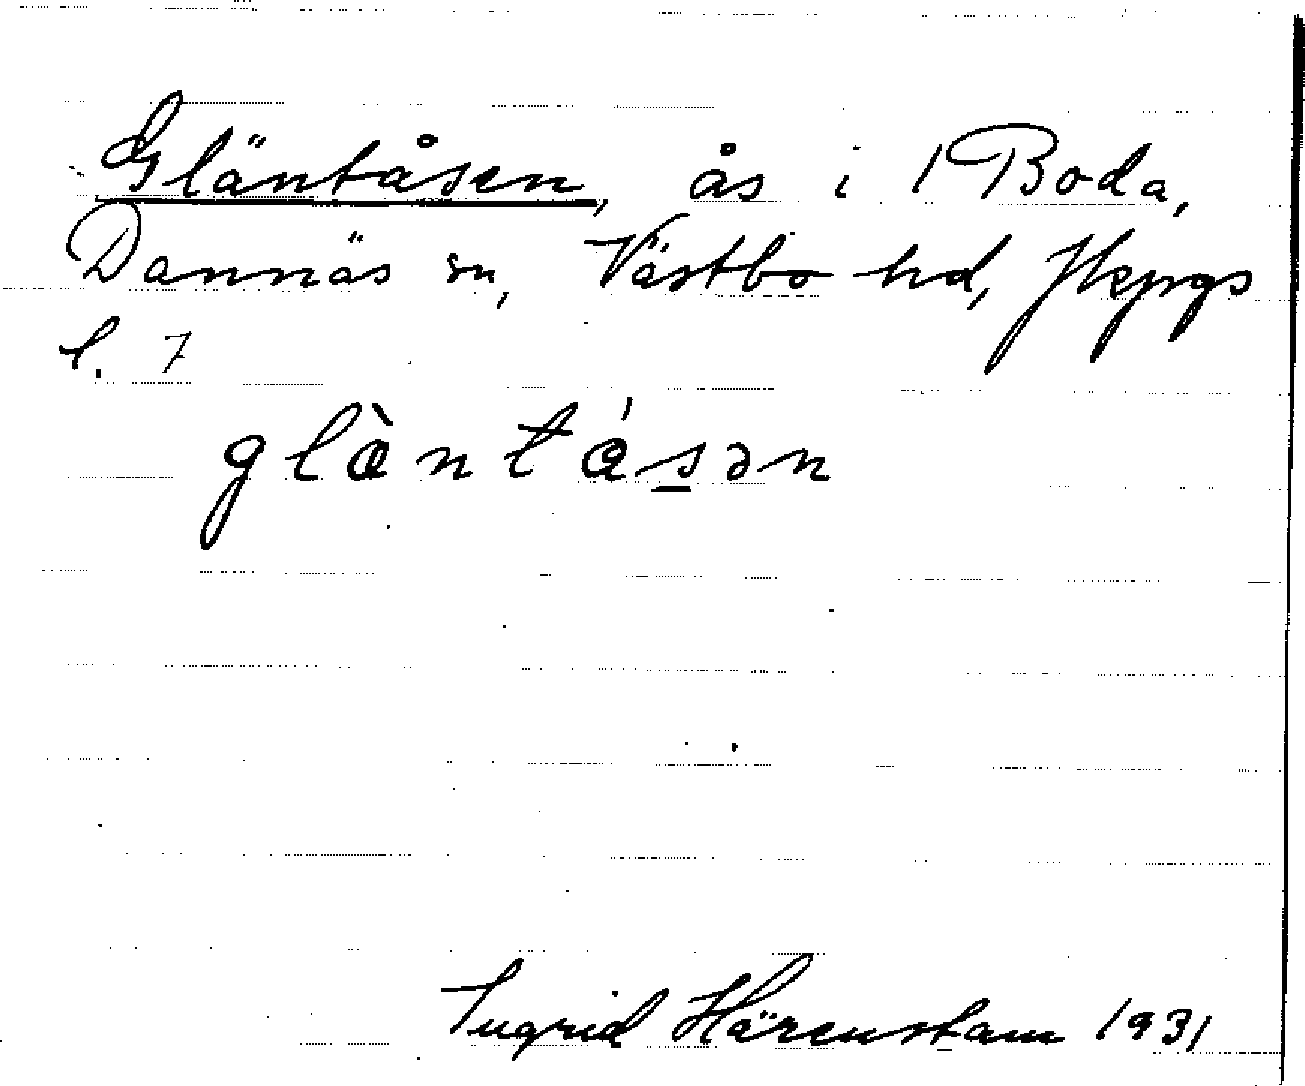 Gläntåsen, ås i Boda,
Dannäs sn, Västbo hd, Jkpgs
l. 7
glàntásən
Ingrid Härenstam 1931